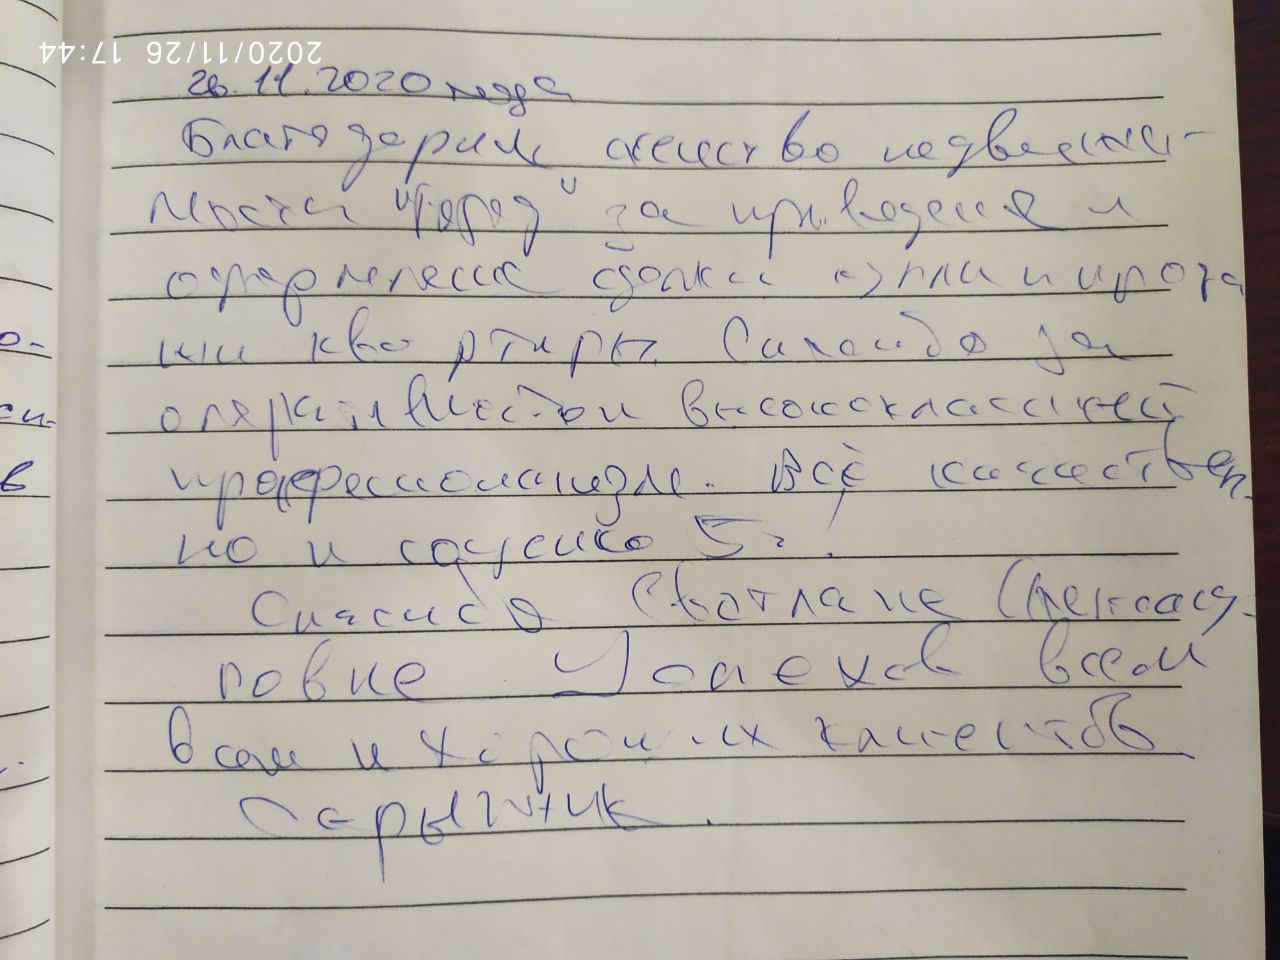 2020/11/26 17:44
26.11.2020 года
Благодарим агенство недвижи-
мости "Город" за проведения и
оформления сделки купли и прода
жи квартиры. Спасибо за
оперативность и высококлассный
професионализм. Всё качествен-
но и оценка 5+!
Спасибо Светлане Александ-
ровне Успехов всем
Вам и хороших качеств